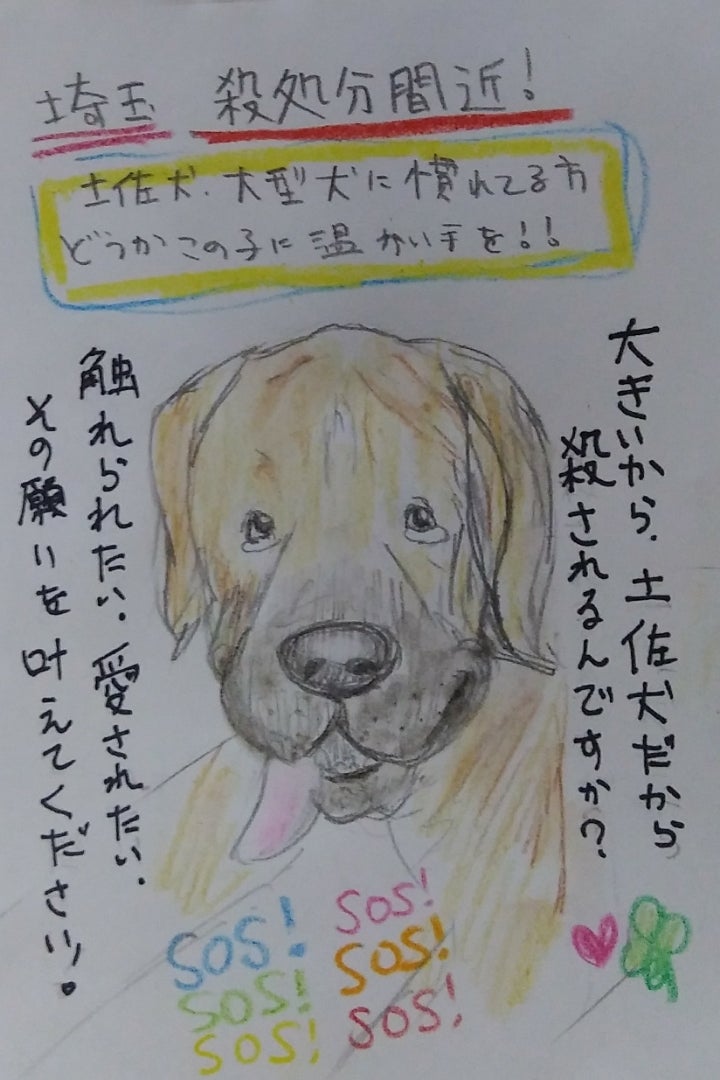 埼玉 殺処分間近!
土佐犬、大型犬に慣れてる方
どうかこの子に温かい手を!!
大きいから、土佐犬だから
殺されるんですか?
触れられたい、愛されたい、
その願いを叶えてください!。
SOS! SOS!
SOS! SOS!
SOS! SOS!